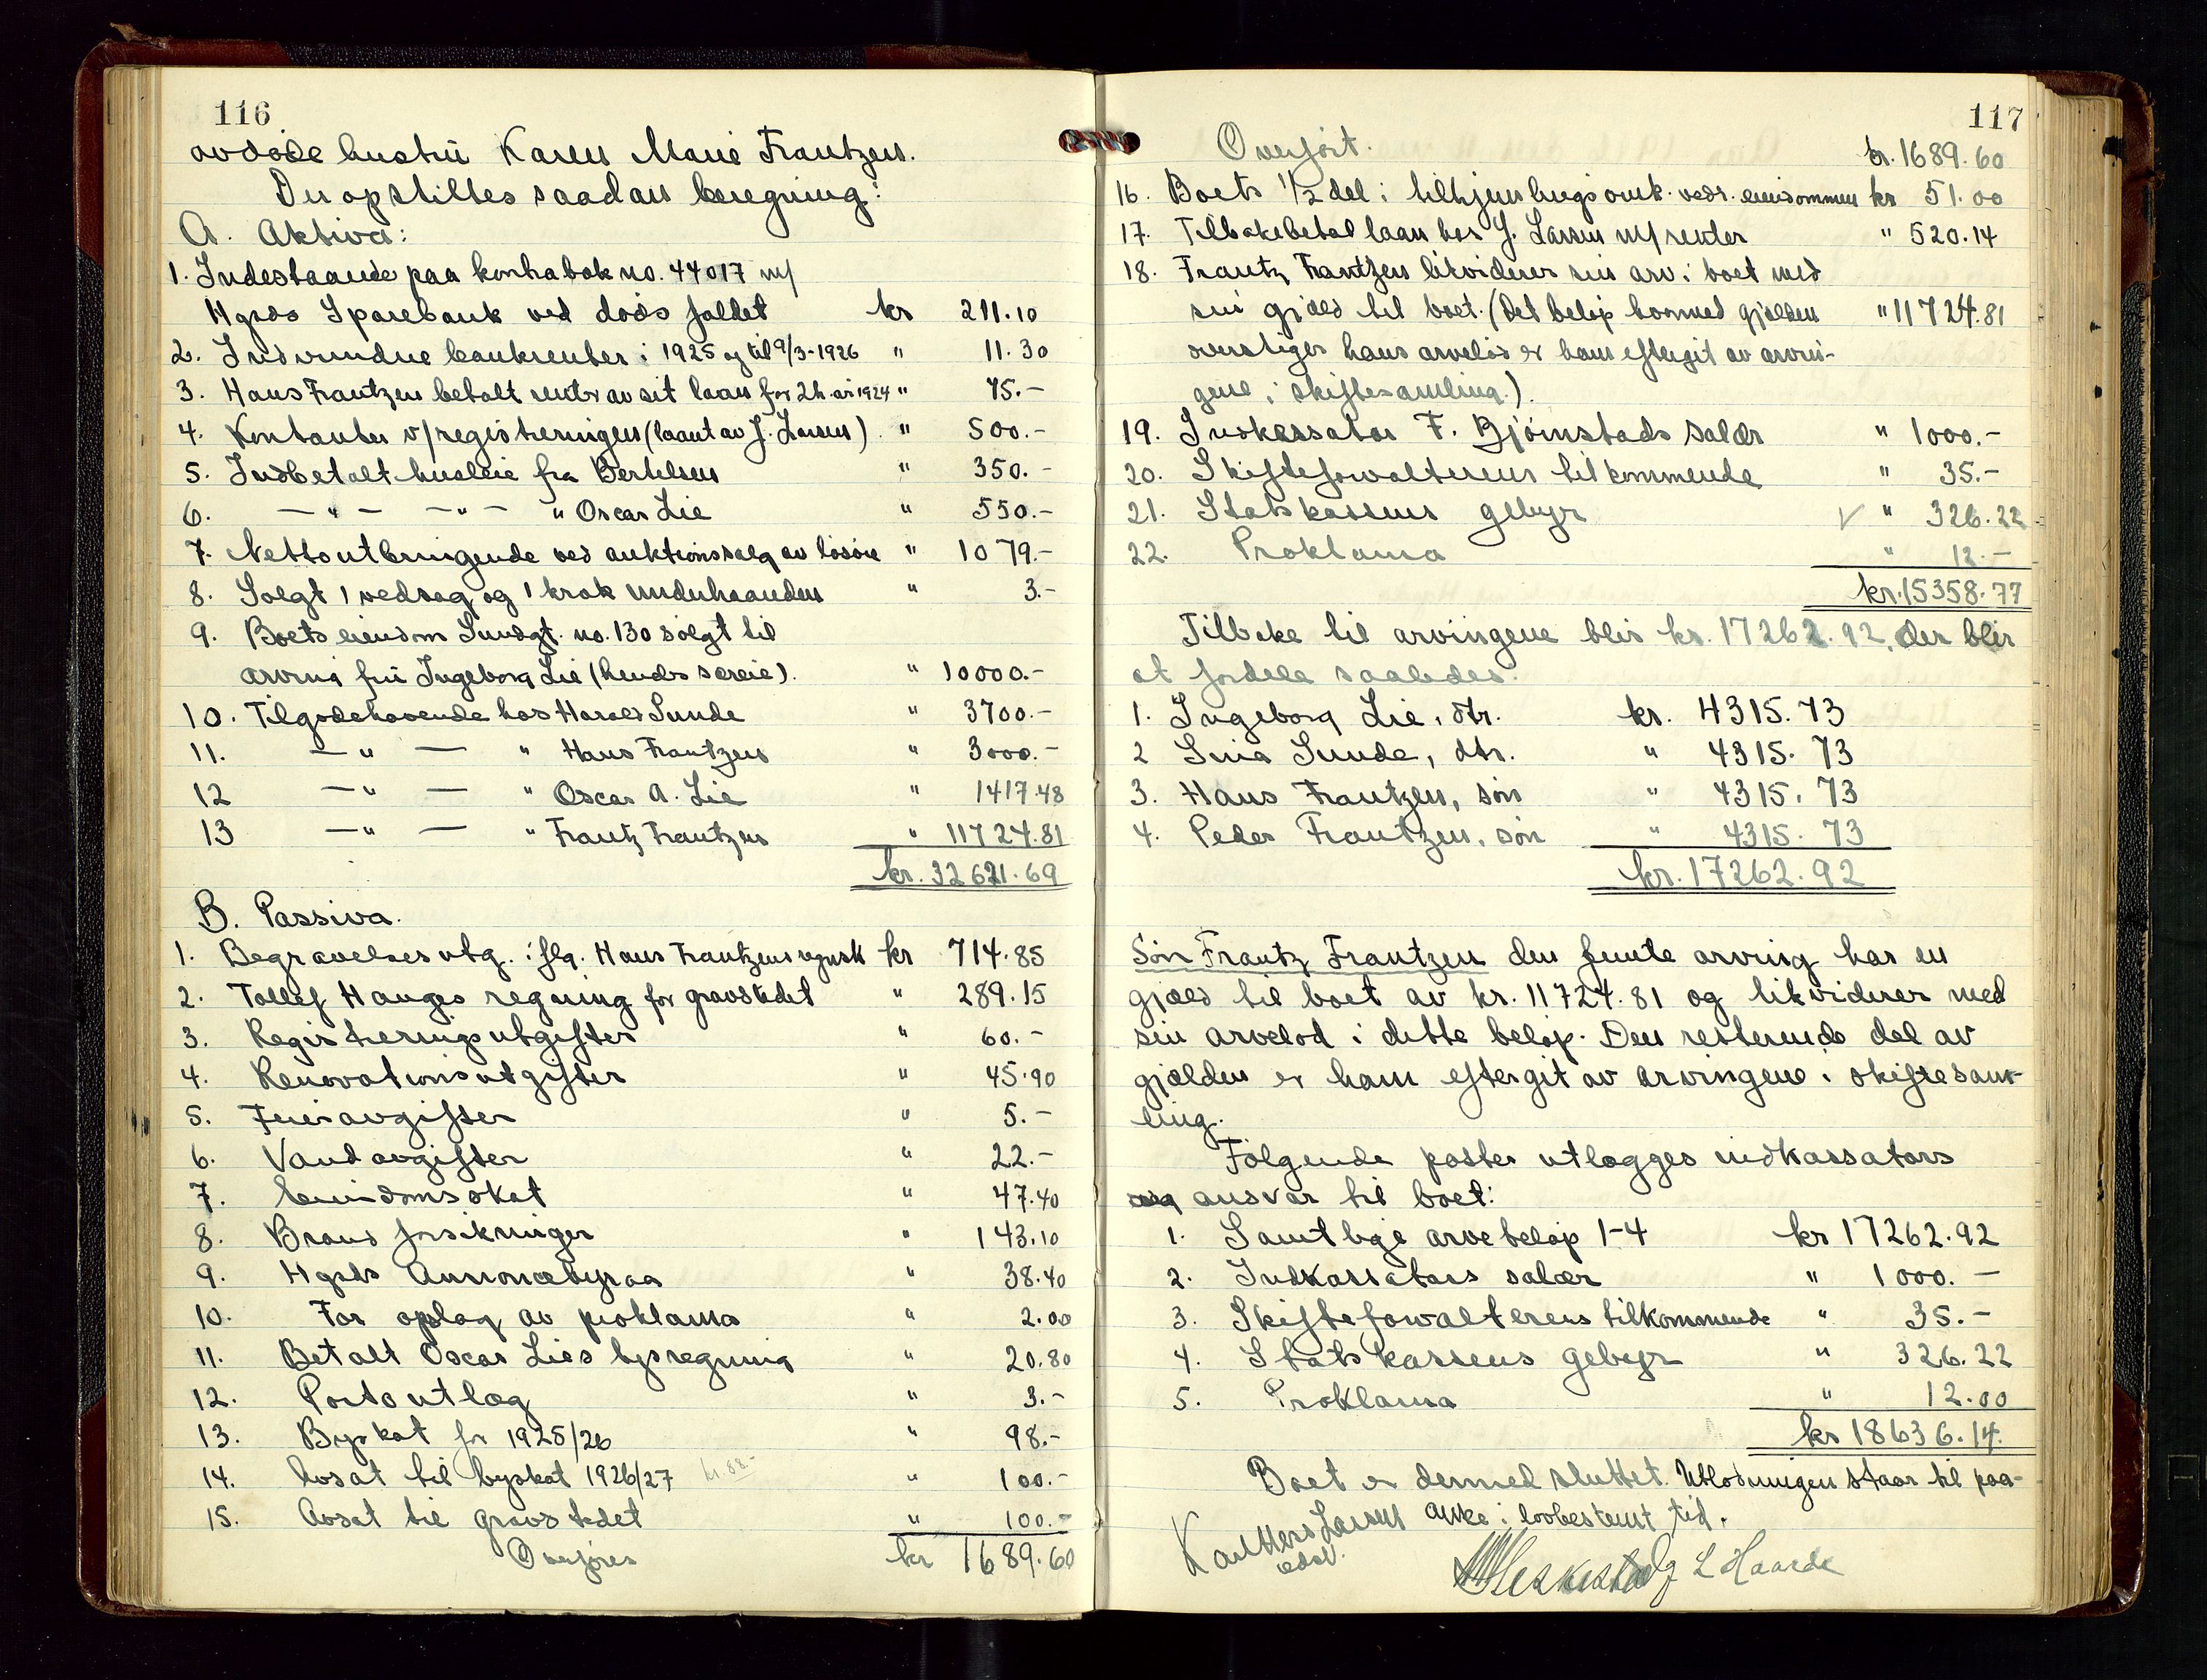 116
avdøde hustru Karen Marie Frantzen.
Der opstilles saadan beregning:
A. Aktiva:
1. Indestaaende paa kontrabok no. 44017 m/
Hgsds Sparebank ved dødsfaldet kr 211.10
2. Indvundne bankrenter i 1925 og til 9/3-1926 " 11.30
3. Hans Frantzen betalt renter av sit laan for 2h.år 1924 " 75.-
4. Kontanter v/registreringen (laant av J. Larsen) " 500.-
5. Indbetalt husleie fra Bertelsen " 350.-
6. -"- -"- " Oscar Lie " 550.-
7. Nettoutbringende ved auktionssalg av løsøre " 1079.-
8. Solgt 1 vedsag og 1 krak underhaanden " 3.-
9. Boets eiendom Sundgt. no. 130 solgt til
arving fru Ingeborg Lie (hendes særeie). " 10000.-
10. Tilgodehavende hos Harald Sunde " 3700.-
11. -"- " Hans Frantzen " 3000.-
12 -"- " Oscar A. Lie " 1417.48
13 -"- " Frantz Frantzen " 11724.81
kr. 32621.69
B. Passiva.
1. Begravelsesutg. iflg. Hans Frantzens regnsk kr 714.85
2. Tollef Hauges regning for gravstedet " 289.15
3. Registreringsutgifter " 60.-
4. Renovationsutgifter " 45.90
5. Feieravgifter " 5.-
6. Vandavgifter " 22.-
7. Eiendomsskat " 47.40
8. Brandforsikringer " 143.10
9. Hgsds Annoncebyraa " 38.40
10. For oplag av proklama " 2.00
11. Betalt Oscar Lies lysregning " 20.80
12. Portoutlæg " 3.-
13. Byskat for 1925/26 " 98.-
14. Avsat til byskat 1926/27 kr. 88.- " 100.-
15. Avsat til gravstedet " 100.-
Overføres kr 1689.60
117
Overført. kr. 1689.60
16. Boets 1/2 del i tilhjemlingsomk. vedr. eiendommen kr 51.00
17. Tilbakebetal laan hos J. Larsen m/renter " 520.14
18. Frantz Frantzen likviderer sin arv i boet med
sin gjæld til boet. (Det beløp hvormed gjælden " 11724.81
overstiger hans arvelod er ham eftergit av arvin-
gene i skiftesamling.)
19. Inkassator F. Bjørnstads salær " 1000.-
20. Skifteforvalterens tilkommende " 35.-
21. Statskassens gebyr " 326.22
22. Proklama " 12.-
kr. 15358.77
Tilbake til arvingene blir kr. 17262.92, der blir
at fordele saaledes:
1. Ingeborg Lie, dtr. kr. 4315.73
2 Sina Sunde, dtr. " 4315.73
3. Hans Frantzen, søn " 4315.73
4. Peder Frantzen, søn " 4315.73
kr. 17262.92
Søn Frantz Frantzen den femte arving har en
gjæld til boet av kr. 11724.81 og likviderer med
sin arvelod i dette beløp. Den resterende del av
gjælden er ham eftergit av arvingene i skiftesam-
ling.
Følgende poster utlægges indkassators
ansvar til boet:
1. Samtlige arvebeløp 1-4 kr 17262.92
2. Indkassators salær " 1000.-
3. Skifteforvalterens tilkommende " 35.-
4. Statskassens gebyr " 326.22
5. Proklama " 12.00
kr 18636.14.
Boet er dermed sluttet. Utlodningen staar til paa-
anke i lovbestemt tid.
L Haarde